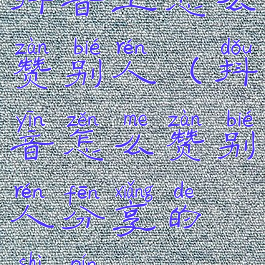 抖音上怎么
zàn bié rén dǒu
赞别人（抖
yīn zěn me zàn bié
音怎么赞别
rén fēn xiǎng de
人分享的